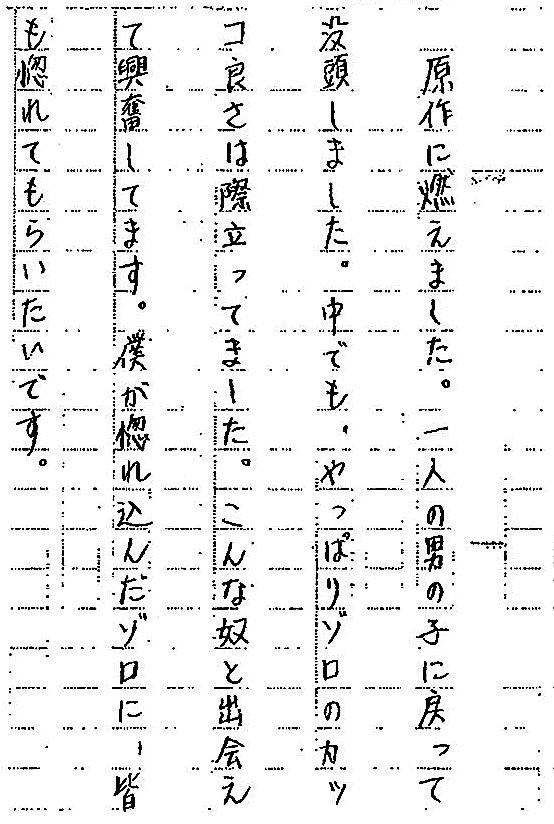 原作に燃えました。一人の男の子に戻って
没頭しました。中でも、やっぱりゾロのカッ
コ良さは際立ってました。こんな奴と出会え
て興奮してます。僕が惚れ込んだゾロに、皆
も惚れてもらいたいです。